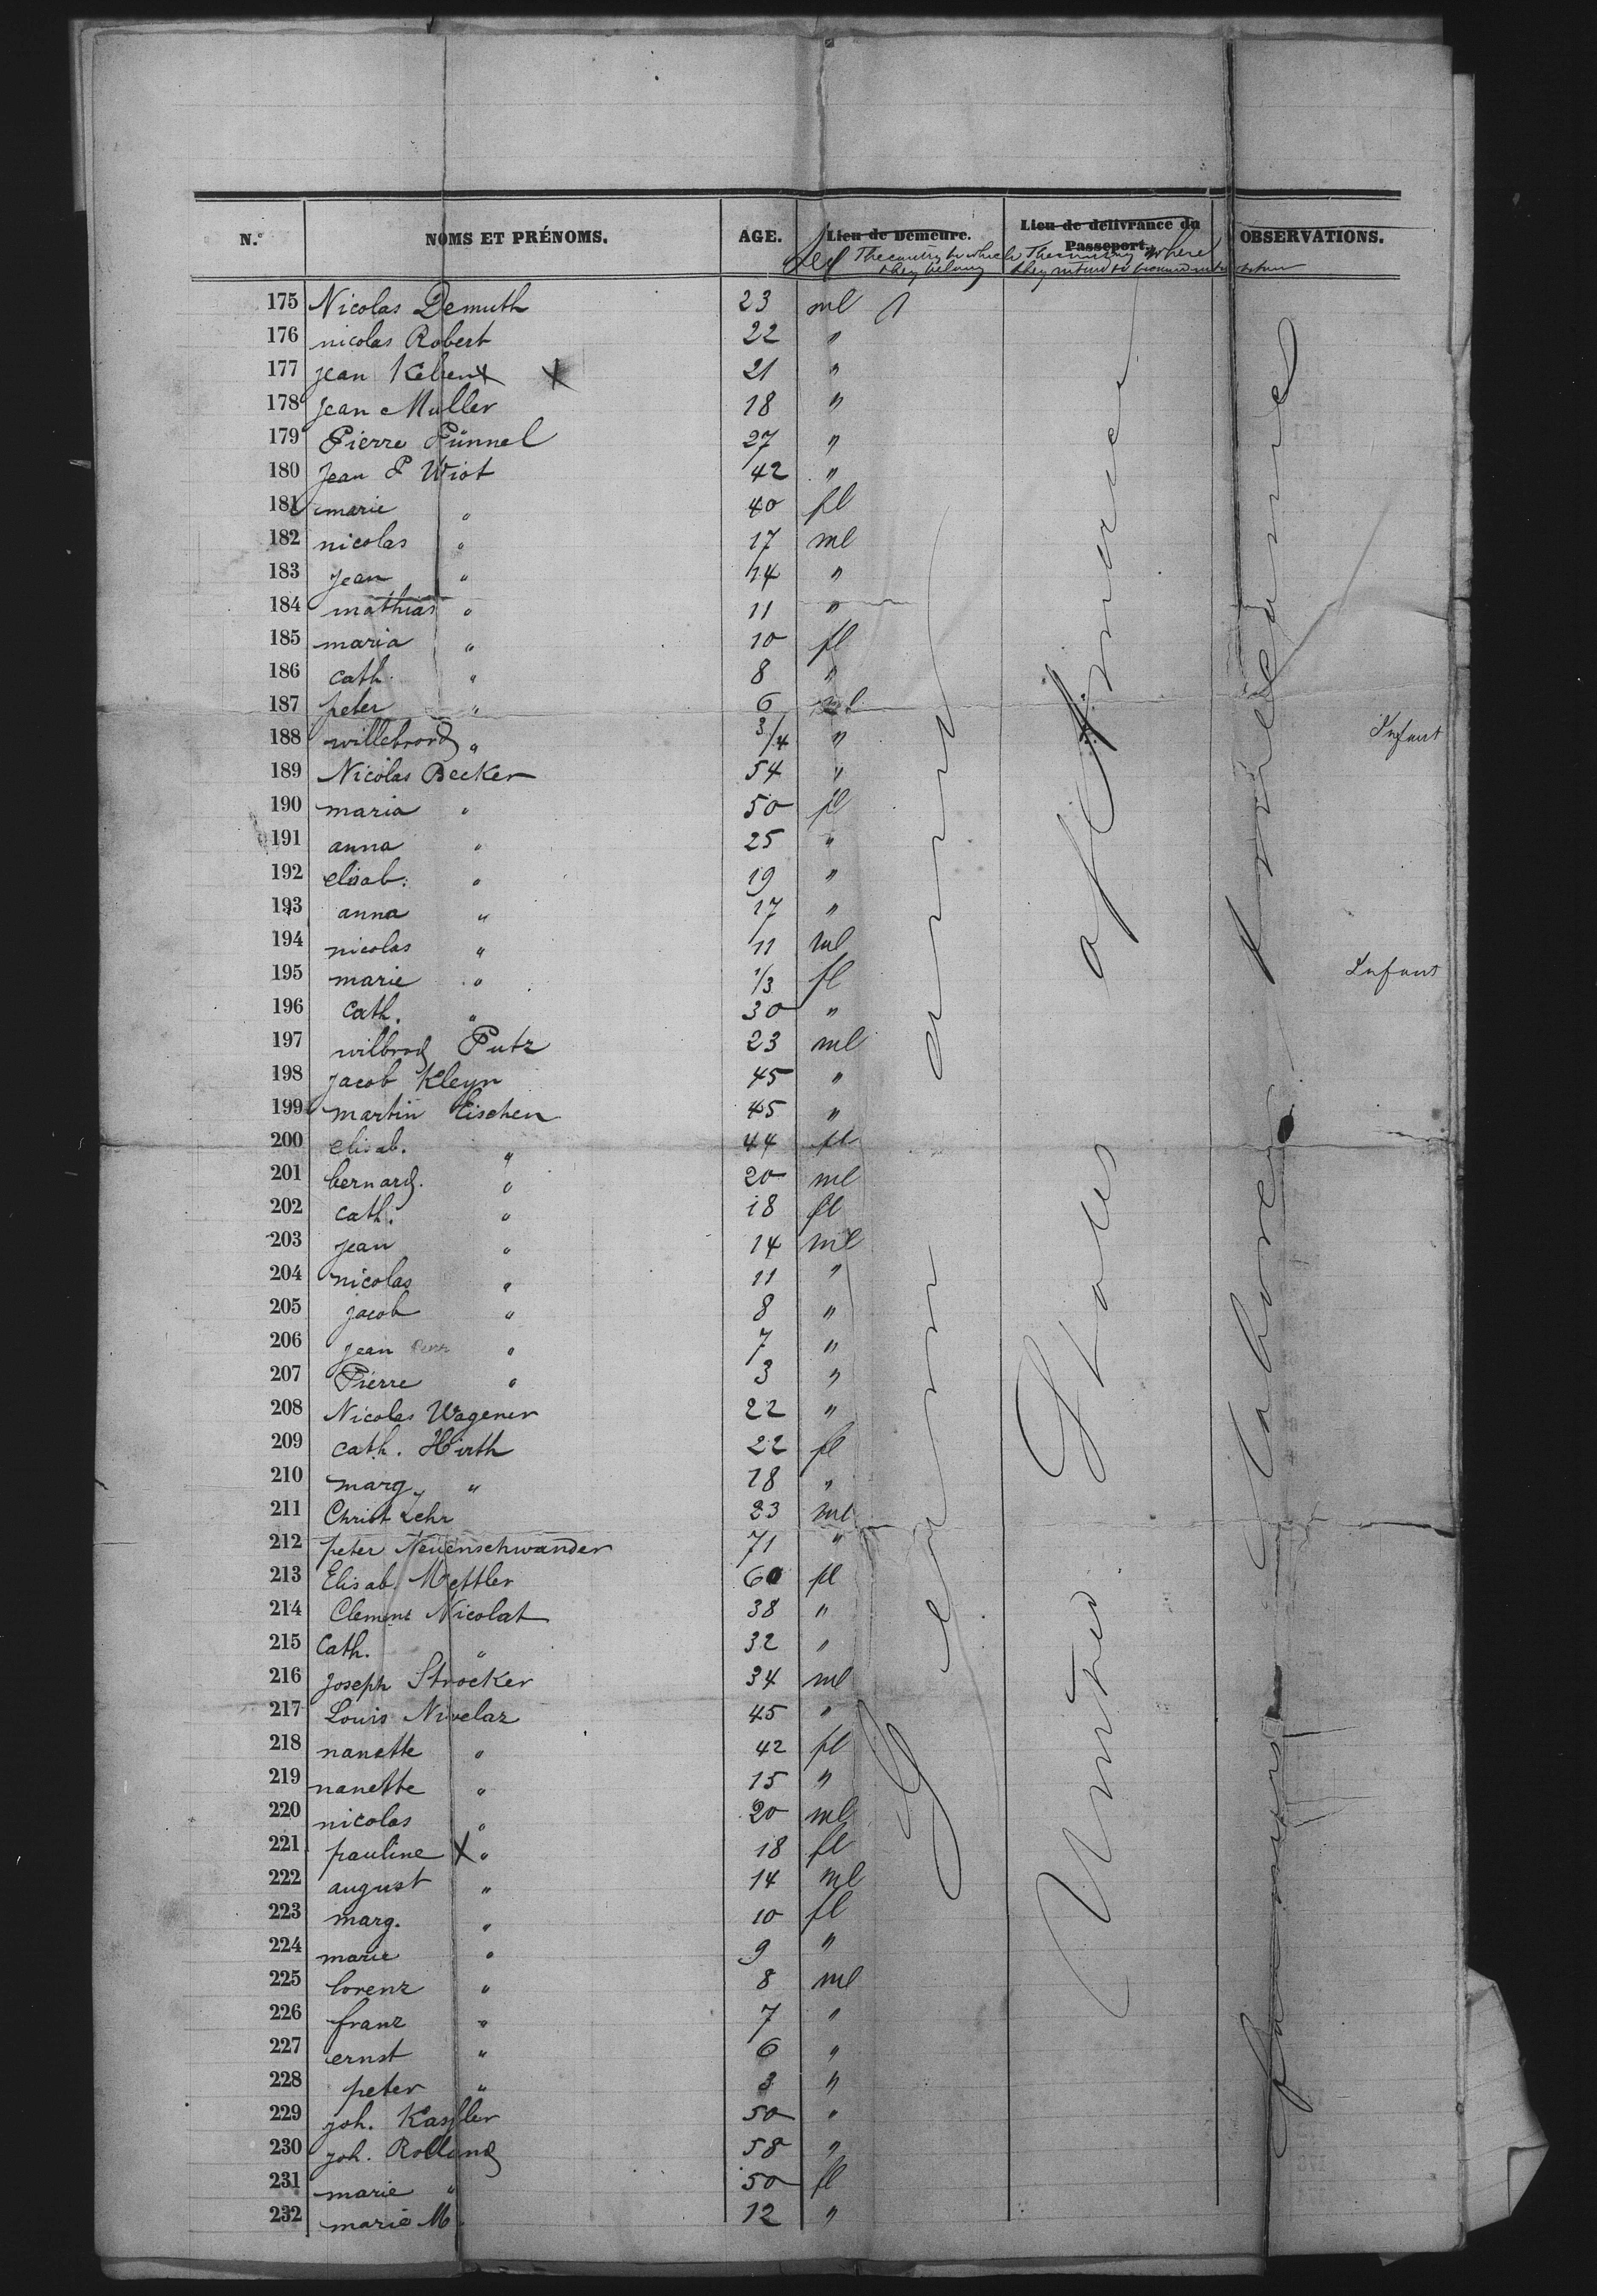 N.° NOMS ET PRÉNOMS. AGE. Lieu de Demeure. Lieu de délivrance du Passeport. OBSERVATIONS.
The country to which they belong The country where they intend to
175 Nicolas Demuth 23 ml
176 nicolas Robert 22 "
177 jean X 21 "
178 jean Muller 18 "
179 Pierre Pünnel 27 "
180 Jean P Wiot 42 "
181 marie " 40 fl
182 nicolas " 17 ml
183 jean " 14 "
184 mathias " 11 "
185 maria " 10 fl
186 cath. " 8 "
187 peter " 6 ml
188 willebrord " 3/4 " Infant
189 Nicolas Becker 54 "
190 maria " 50 fl
191 anna " 25 "
192 elisab. " 19 "
193 anna " 17 "
194 nicolas " 11 ml
195 marie " 1/3 fl Infant
196 Cath. " 30 "
197 wilbrod Putz 23 ml
198 jacob Kleyn 45 "
199 martin Eischen 45 "
200 elisab. " 44 fl
201 bernard. " 20 ml
202 cath. " 18 fl
203 jean " 14 ml
204 nicolas " 11 "
205 jacob " 8 "
206 jean " 7 "
207 Pierre " 3 "
208 Nicolas Wagener 22 "
209 cath. Hirth 22 fl
210 marg. " 18 "
211 Christ Lehr 23 ml
212 peter Neuenschwander 71 "
213 Elisab. Mettler 60 fl
214 Clemens Nicolat 38 "
215 Cath. " 32 "
216 joseph Strocker 34 ml
217 Louis Nivelaz 45 "
218 nanette " 42 fl
219 nanette " 15 "
220 nicolas " 20 ml
221 pauline X " 18 fl
222 august " 14 ml
223 marg. " 10 fl
224 marie " 9 "
225 lorenz " 8 ml
226 franz " 7 "
227 ernst " 6 "
228 peter " 3 "
229 joh. Kassler 50 "
230 joh. Rolland 58 "
231 marie " 50 fl
232 marie M. 12 "
Germany
United States of America